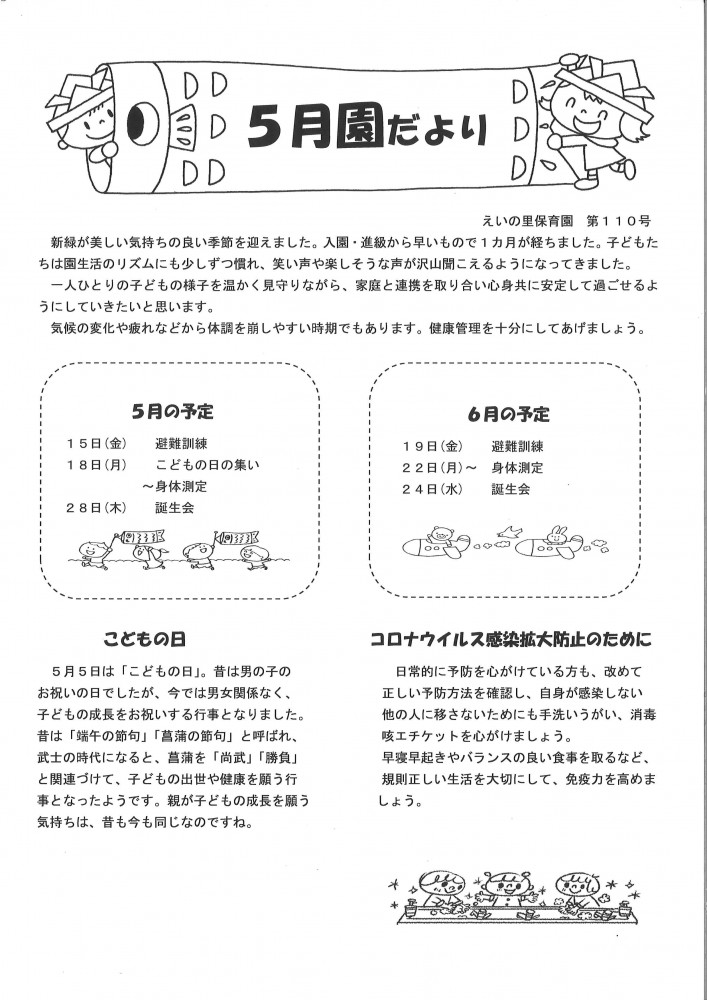 ５月園だより
えいの里保育園　第１１０号
新緑が美しい気持ちの良い季節を迎えました。入園・進級から早いもので１カ月が経ちました。子どもた
ちは園生活のリズムにも少しずつ慣れ、笑い声や楽しそうな声が沢山聞こえるようになってきました。
一人ひとりの子どもの様子を温かく見守りながら、家庭と連携を取り合い心身共に安定して過ごせるよ
うにしていきたいと思います。
気候の変化や疲れなどから体調を崩しやすい時期でもあります。健康管理を十分にしてあげましょう。
５月の予定
１５日(金)　避難訓練
１８日(月)　こどもの日の集い
～身体測定
２８日(木)　誕生会
６月の予定
１９日(金)　避難訓練
２２日(月)～　身体測定
２４日(水)　誕生会
こどもの日
５月５日は「こどもの日」。昔は男の子の
お祝いの日でしたが、今では男女関係なく、
子どもの成長をお祝いする行事となりました。
昔は「端午の節句」「菖蒲の節句」と呼ばれ、
武士の時代になると、菖蒲を「尚武」「勝負」
と関連づけて、子どもの出世や健康を願う行
事となったようです。親が子どもの成長を願う
気持ちは、昔も今も同じなのですね。
コロナウイルス感染拡大防止のために
日常的に予防を心がけている方も、改めて
正しい予防方法を確認し、自身が感染しない
他の人に移さないためにも手洗いうがい、消毒
咳エチケットを心がけましょう。
早寝早起きやバランスの良い食事を取るなど、
規則正しい生活を大切にして、免疫力を高めま
しょう。